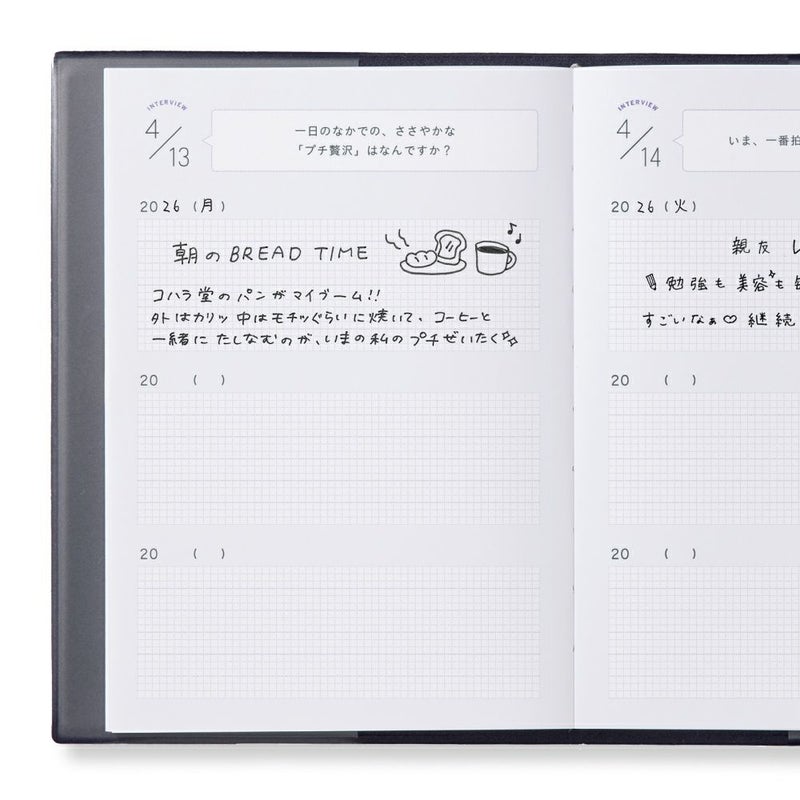 INTERVIEW
4/13
一日のなかでの、ささやかな
「プチ贅沢」はなんですか？
2026（月）
朝のBREAD TIME
コハラ堂のパンがマイブーム!!
外はカリッ 中はモチッぐらいに焼いて、コーヒーと
一緒に たしなむのが、いまの私の プチぜいたく
20 （ ）
20 （ ）
INTERVIEW
4/14
いま、一番拍
2026（火）
親友 し
勉強も 美容も
すごいなぁ♡ 継続
20 （ ）
20 （ ）